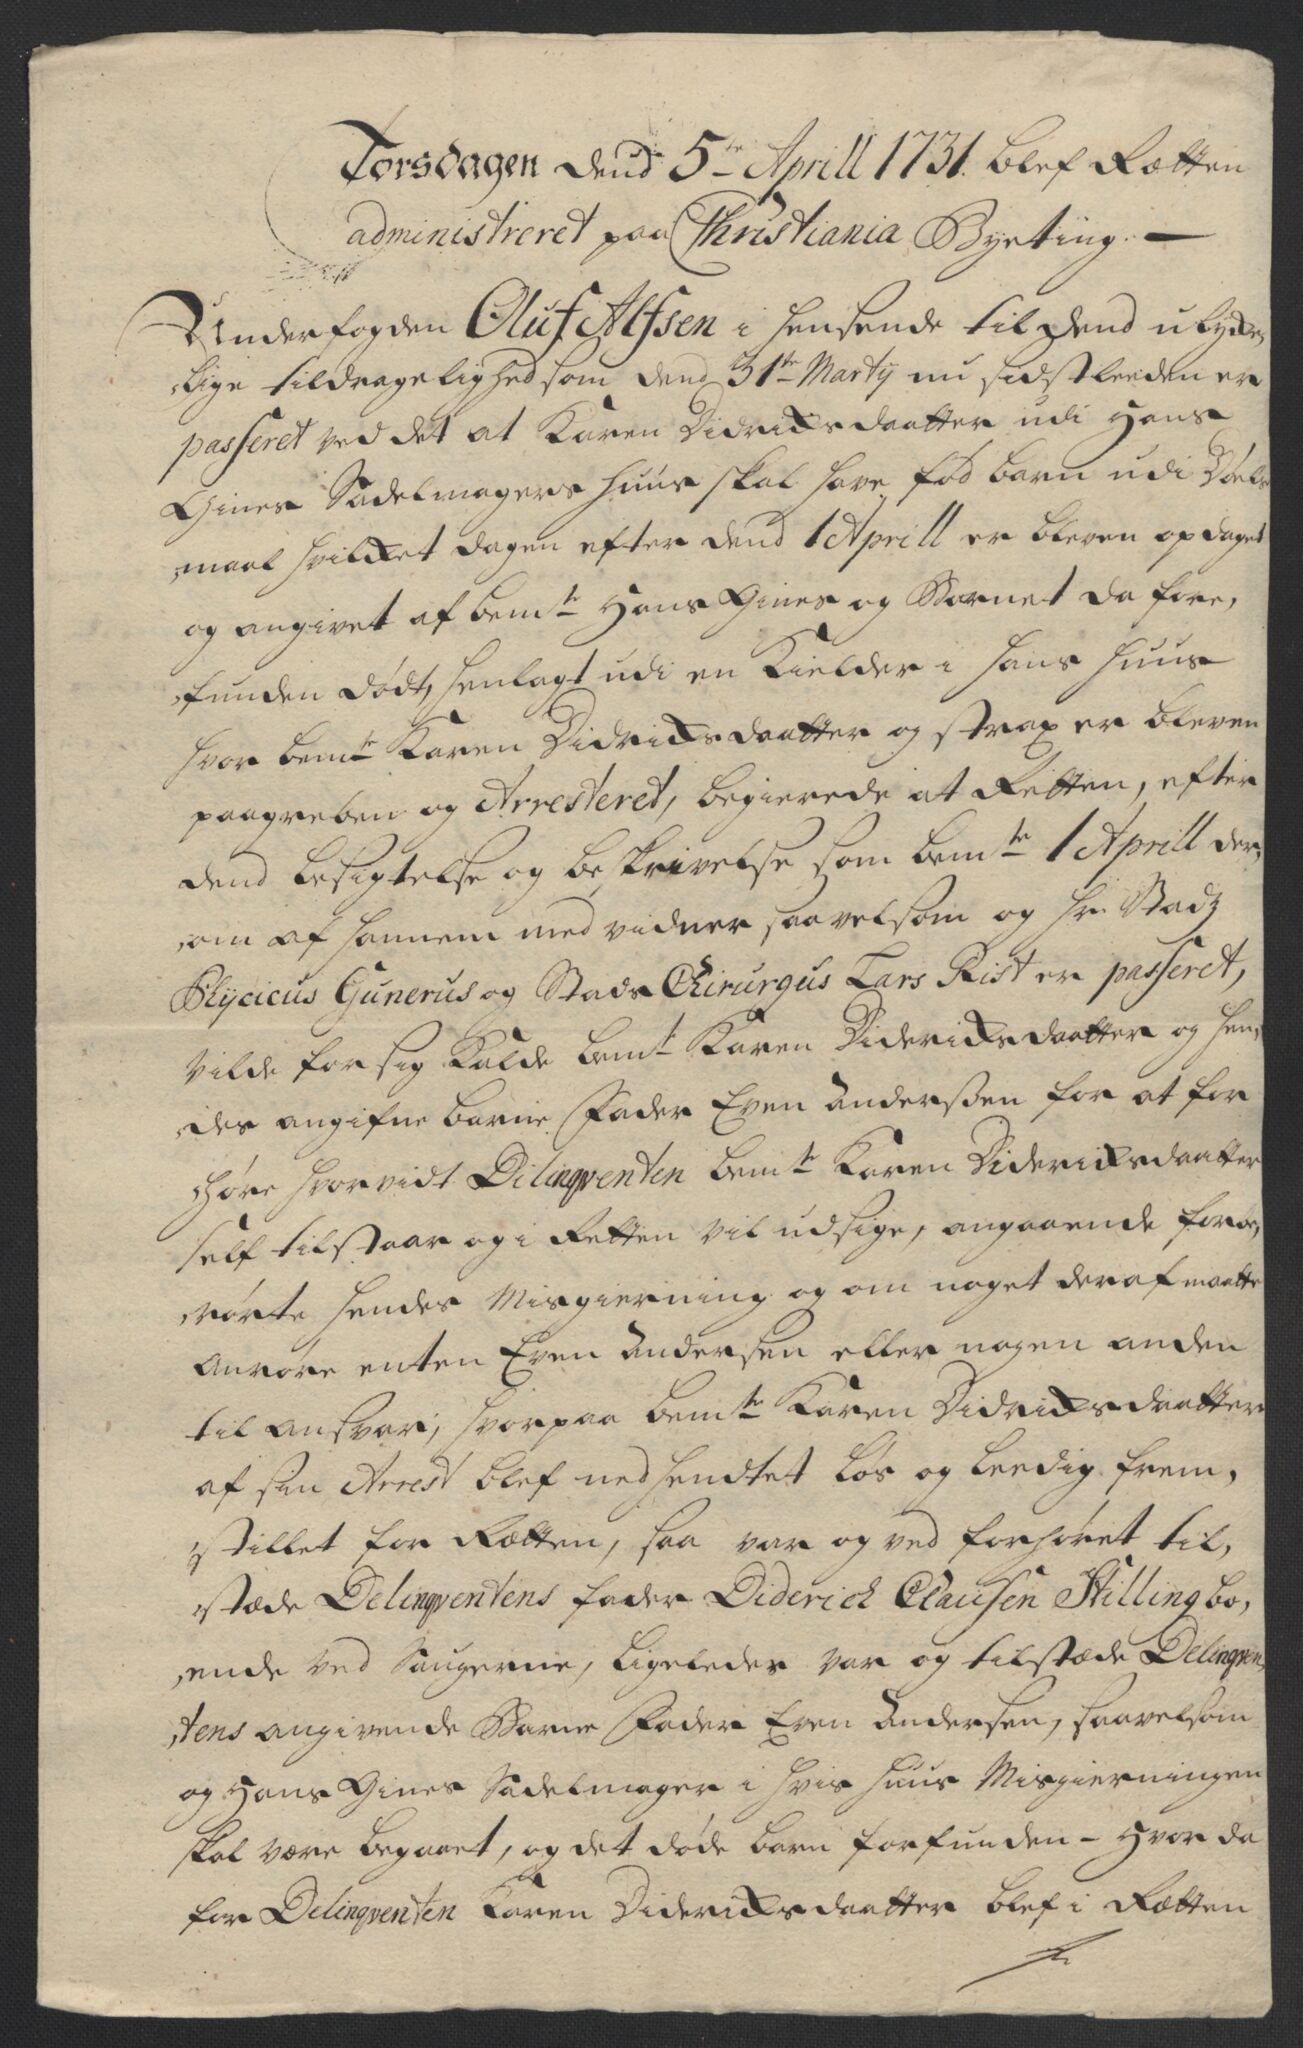 Torsdagen dend 5te Aprill 1731. blef Rætten
administreret paa Christiania Byeting. —
Underfogden Oluf Alfsen i hensende til dend ulycke,
lige tildragelighed som dend 31te Martij nu sidstleeden er
passeret ved det at Karen Didrixsdaatter udi Hans
Gines Sadelmagers huus skal have fød barn udi Døels,
maal hvilket dagen efter dend 1 Aprill er bleven opdaget
og angivet af bemte Hans Gines og Barnet da fore,
funden dødt, henlagt udi en Kielder i hans huus
hvor bemte Karen Didrixsdaatter og strax er bleven
paagreben og Arresteret, begierede at Retten, efter
dend besigtelse og beskrivelse som bemte 1 Aprill der,
om af hannem med vidner saavelsom og hr. Stadz
Phycicus Gunerus og Stads Chirurgus Lars Rist er passeret,
vilde for sig kalde bemt Karen Diderixsdaatter og hen,
des angifne barne Fader Even Anderssen for at for
høre hvorvidt Delinqventen bemte Karen Diderixsdaatter
self tilstaar og i Retten vil udsige, angaaende forbe,
rørte hendes Misgierning og om noget deraf maatte
Anrøre enten Even Andersen eller nogen anden
til ansvar; hvorpaa bemte Karen Didrixsdaatter
af sin Arrest blef nedhendtet løs og leedig frem,
stillet for Rætten, saa var og ved forhøret til,
stæde Delinqventens fader Diderich Clausen Stilling bo,
ende ved Saugerne, ligeledes var og tilstæde Delinqven,
tens angivende Barne Fader Even Andersen, saavelsom
og Hans Gines Sadelmager i hvis huus Misgierningen
skal være begaaet, og det døde barn forfunden - Hvor da
for Delinqventen Karen Diderixsdaatter blef i Rætten